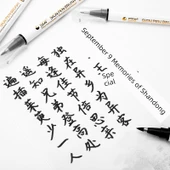 September 9 Memories of Shandong
·王
Spe
cial
独在异乡为异客
每逢佳节倍思亲
遥知兄弟登高处
遍插茱萸少一人